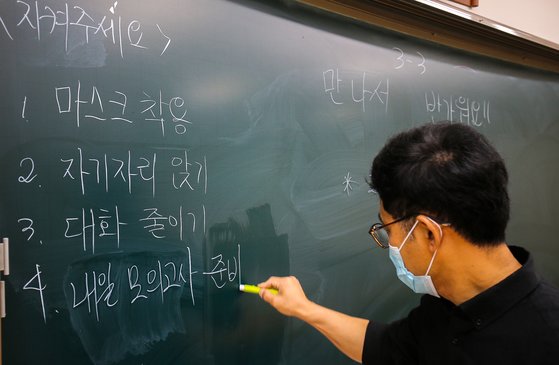 <지켜주세요>
1. 마스크 착용
2. 자기자리 앉기
3. 대화 줄이기
4. 내일 모의고사 준비
3-3
만나서 반가워요!!
*